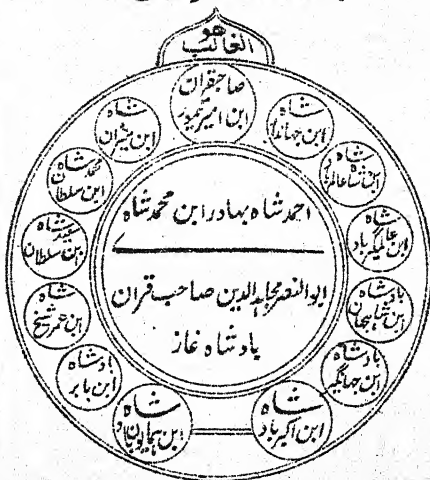 هو
الغالب
صاحبقران
ابن امیر تیمور
شاه
ابن جہاندار
شاه
ابن شاه عالم باد
شاه
ابن عالمگیر باد
بادشاه
ابن شاہجہان
بادشاه
ابن جہانگیر
شاه
ابن اکبر باد
شاه
ابن ہمایوں باد
بادشاه
ابن بابر
شاه
ابن عمر شیخ
شاه
ابن سلطان
محمد شاه
ابن سلطان
شاه
ابن میران
احمد شاه بہادر ابن محمد شاه
ے
ابوالنصر مجاہد الدین صاحب قران
بادشاه غاز